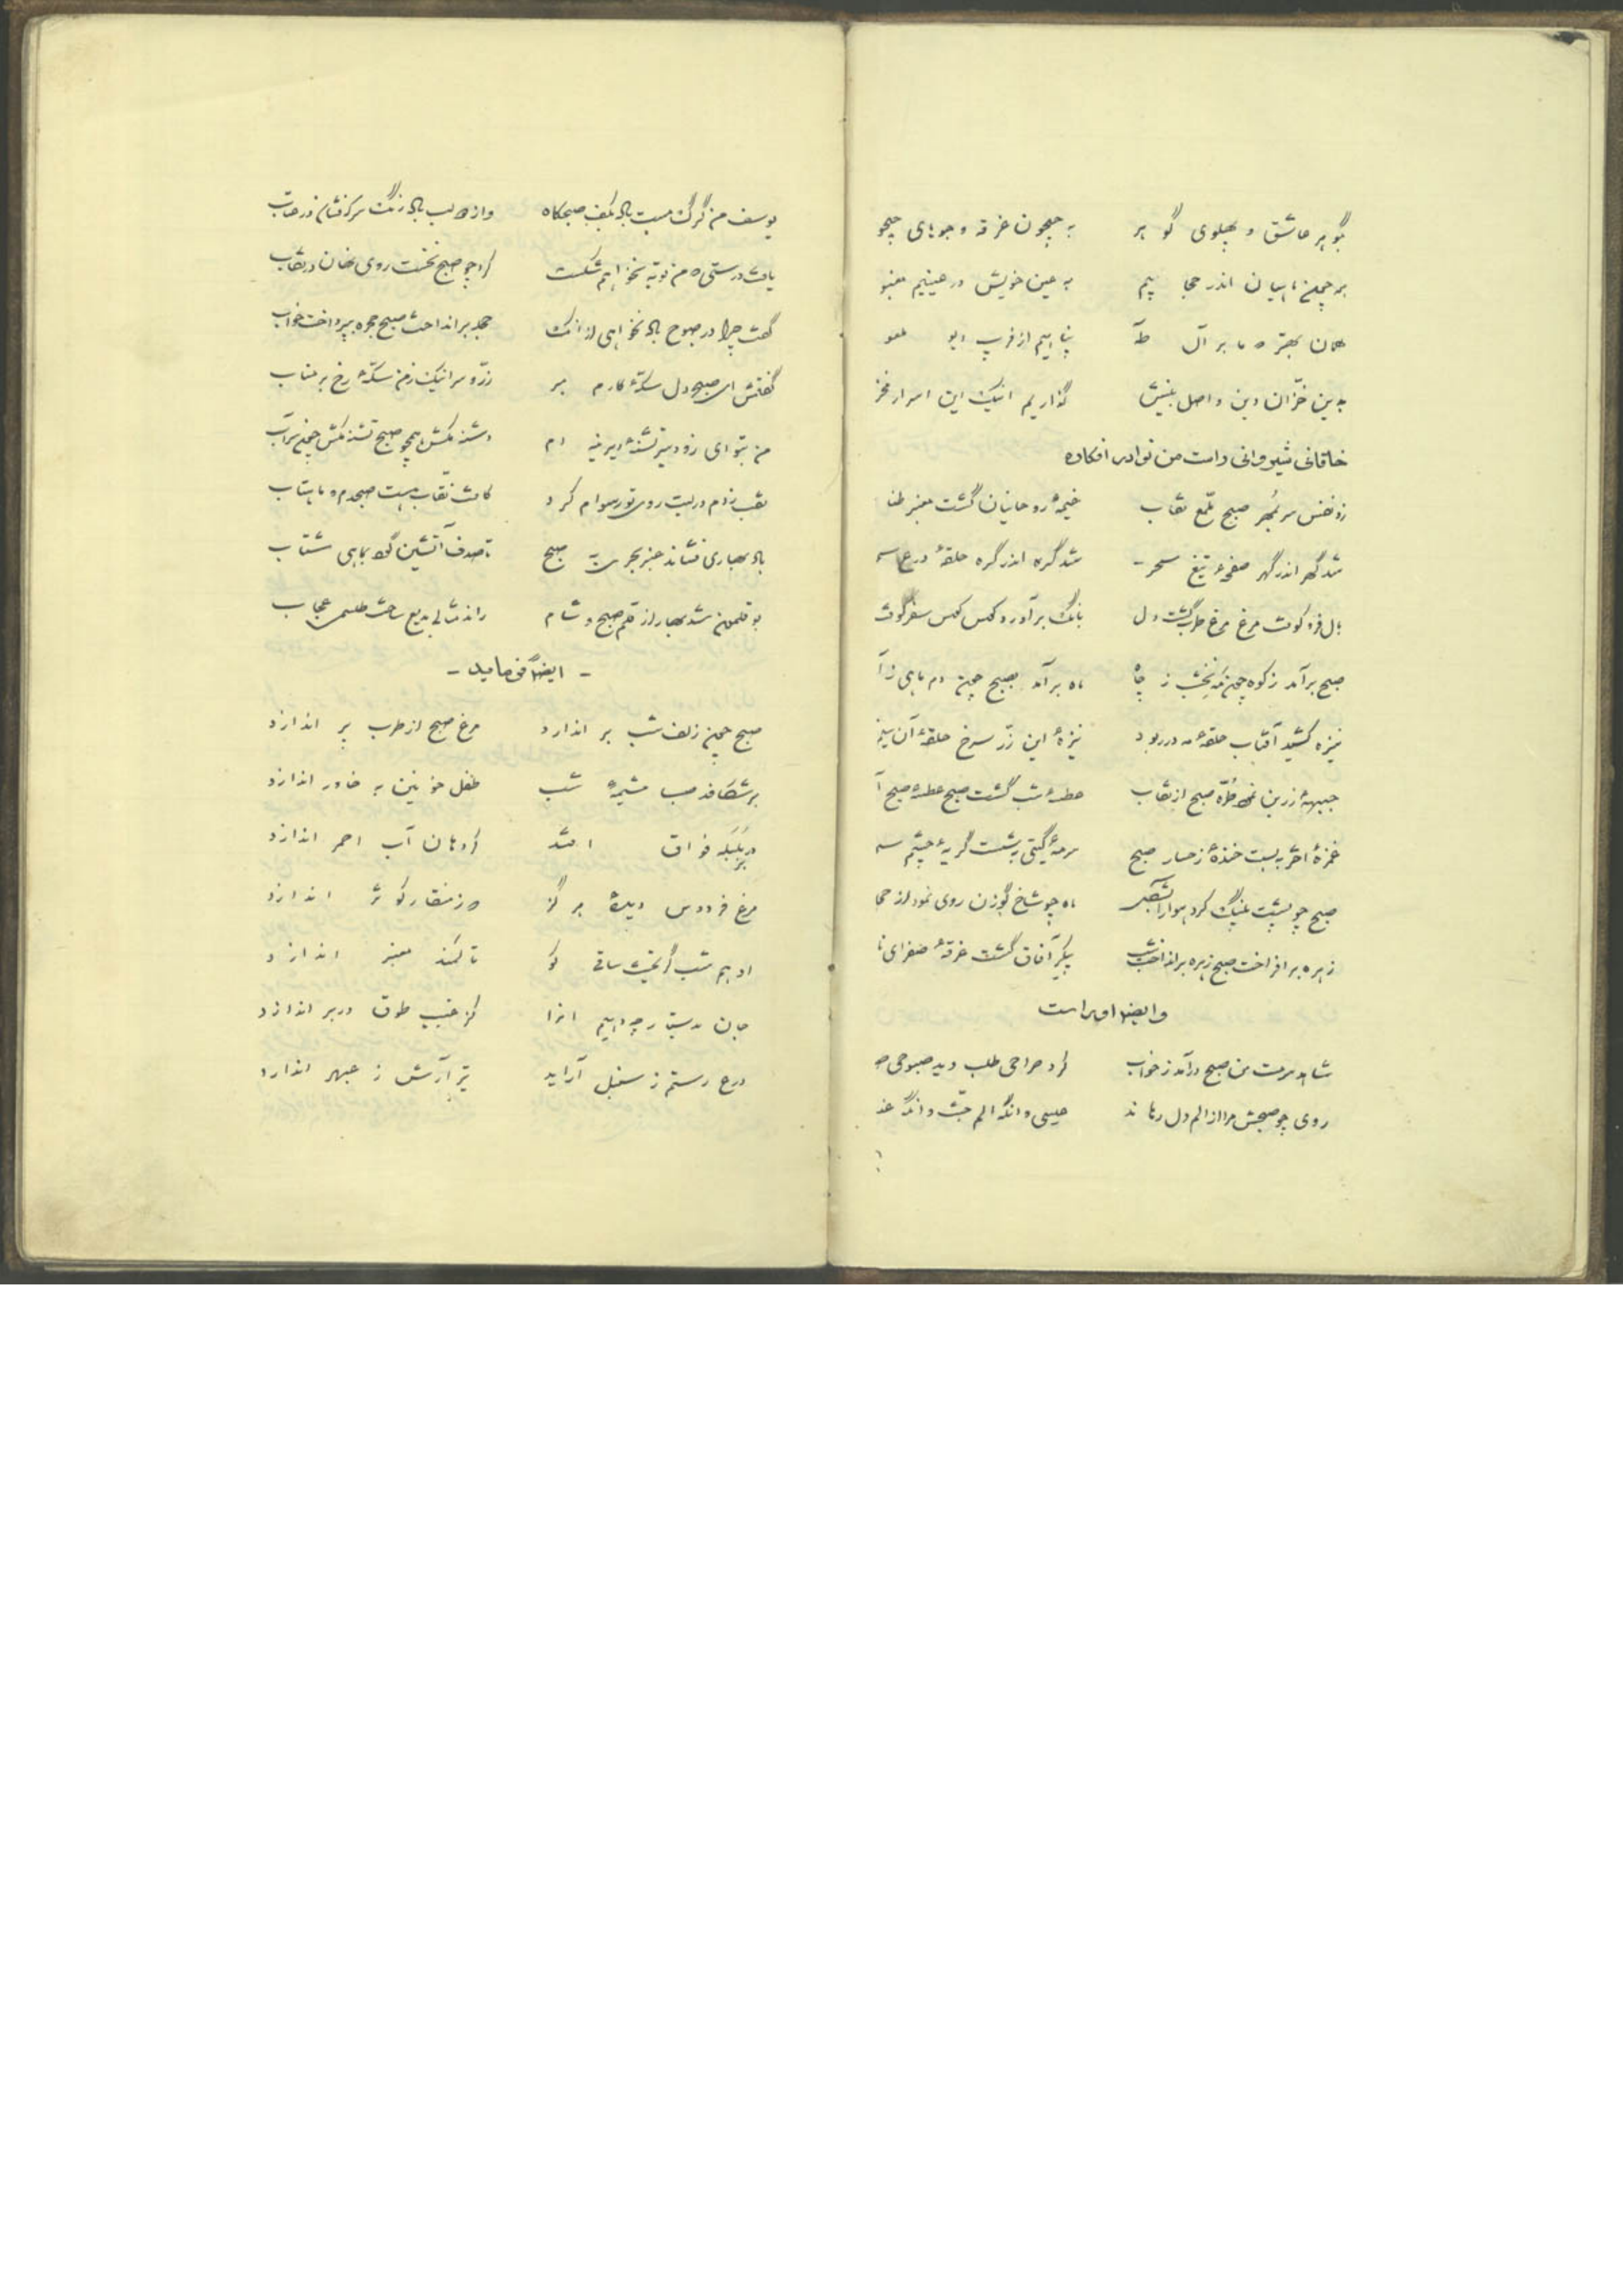 بگو هر عاشق و پهلوی گو هر به جیحون غرقه و جویای جیحو
همه چون ماهیان اندر حجا بیم به عین خویش در عینیم مغبو
همان بهتر که ما بر آل طآ پناهیم از فریب دیو ملعو
بدین خزّان دین و اصل بینش گذاریم اینک این اسرار مخز
خاقانی شیروانی راست من نوادر افکاره
زد نفس سر بمهر صبح ملمّع نقاب خیمهٔ روحانیان گشت معنبر طنا
شد گهر اندر گهر صفحهٔ تیغ سحر شد گره اندر گره حلقهٔ درع سـ
بال فرو کوفت مرغ مرغ طرب گشت دل بانگ برآورد کوس کوس سفر کوفت
صبح برآمد ز کوه چون مه نخشب ز چاه ماه برآمد بصبح چون دم ماهی ز آ
نیزه کشید آفتاب حلقهٔ مه در ربود نیزهٔ این زرّ سرخ حلقهٔ آن سیم
جبههٔ زرین نمود طرّه صبح از نقاب عطسهٔ شب گشت صبح عطسهٔ صبح آ
غمزهٔ اختر ببست خندهٔ رخسار صبح سرمهٔ گیتی بشست گریهٔ چشم سـ
صبح چو پشت پلنگ کرد هوا را ماه چو شاخ گوزن روی نمود از حجا
زهره برافراخت صبح زهره برانداخت شب پیکر آفاق گشت غرقهٔ صفرای نا
و ایضاً او راست
شاهد سرمست من صبح درآمد ز خواب کرد صراحی طلب دید صبوحی صو
روی چو صبحش مرا از الم دل رهاند عیسی و آنگه الم جنّت و آنگه عذ
یوسف من گرگ مست باده بکف صبحگاه وز دو لب باده رنگ سرکه فشان در عتاب
یافت درستی که من توبه نخواهم شکست کرد چو صبح نخست روی نهان در نقاب
گفت چرا در صبوح باده نخواهی از آنک حجله برانداخت صبح حجره بپرداخت خواب
گفتمش ای صبح دل سکهٔ کارم مبر زر و سر اینک ز من سکهٔ رخ بر متاب
من بتو ای زود سیر تشنهٔ دیرینه ام دشنه مکش همچو صبح تشنه مکش چون سراب
نقب زدم در لبت روی تو رسوام کرد کآفت نقاب هست صبحدم و ماهتاب
باد بهاری فشاند عنبر بحری صبح تا صدف آتشین کرد بماهی شتاب
بوقلمون شد بهار از قلم صبح و شام راند مثالی بدیع ساخت طلسمی عجاب
- ایضاً می فرماید -
صبح چون زلف شب بر اندازد مرغ صبح از طرب پر اندازد
بر شکافد صبا مشیمهٔ شب طفل خونین به خاور اندازد
در بلبله فواق افتد کز دهان آب احمر اندازد
مرغ فردوس دیدهٔ هرگز که ز منقار کوثر اندازد
ادهم شب گریخت ساقی کو تا کمند معنبر اندازد
جان بدستارچه دهیم آنرا کز غبب طوق در بر اندازد
درع رستم ز سنبل آراید تیر آرش ز عبهر اندازد